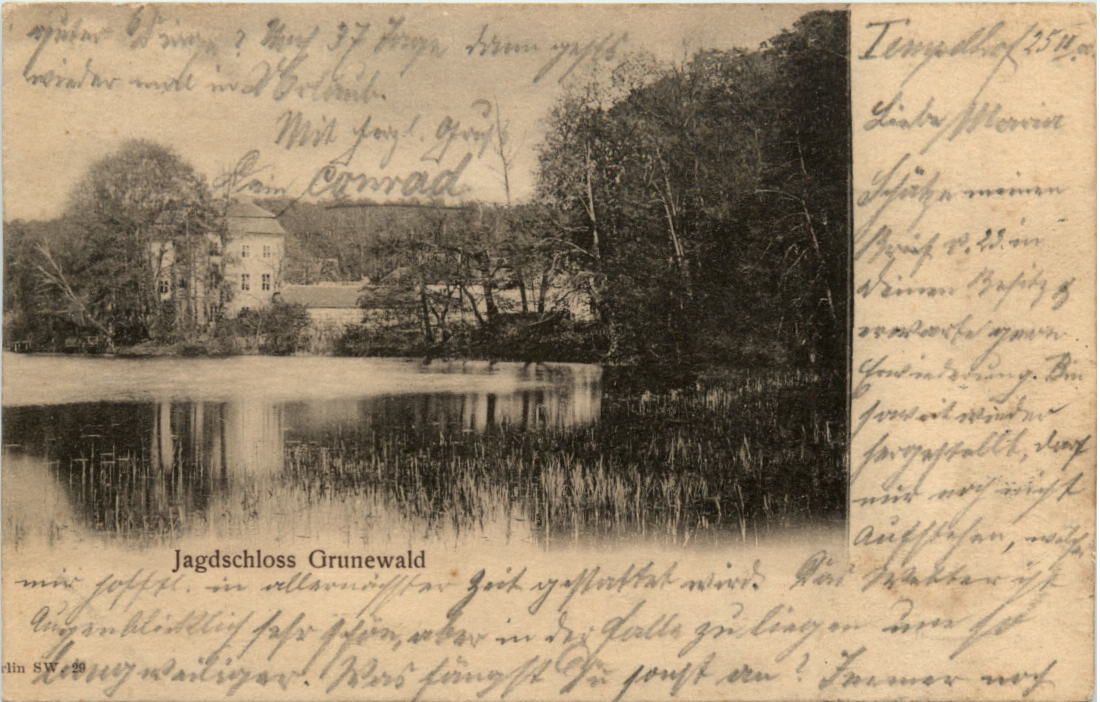 Tempelhof 25 II. 00.
Liebe Maria
Schätze meinen
Brief v. 23. in
Deinen Besitz &
erwarte gern
Erwiederung. Bin
soweit wieder
hergestellt, darf
nur noch nicht
Aufstehen, welches
mir hofftl. in allernächster Zeit gestattet wird. Das Wetter ist
Augenblicklich sehr schön, aber in der Falle zu liegen um so
Langweiliger. Was fängst Du sonst an? Immer noch
guter Dinge? Noch 37 Tage dann gehts
wieder mal in Urlaub.
Mit herzl. Gruß
Dein Conrad
Jagdschloss Grunewald
rlin SW. 29